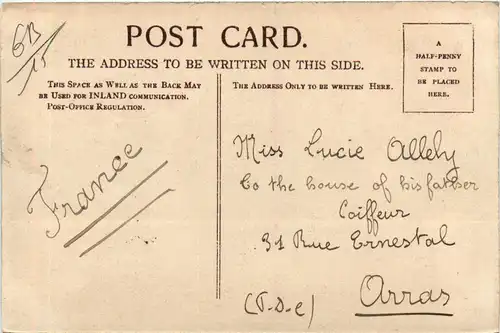 6B/15
POST CARD.
THE ADDRESS TO BE WRITTEN ON THIS SIDE.
A
HALF-PENNY
STAMP TO
BE PLACED
HERE.
THIS SPACE AS WELL AS THE BACK MAY
BE USED FOR INLAND COMMUNICATION.
POST-OFFICE REGULATION.
France
THE ADDRESS ONLY TO BE WRITTEN HERE.
Miss Lucie Allely
to the house of his father
Coiffeur
31 Rue Ernestal
(P-D-C) Arras